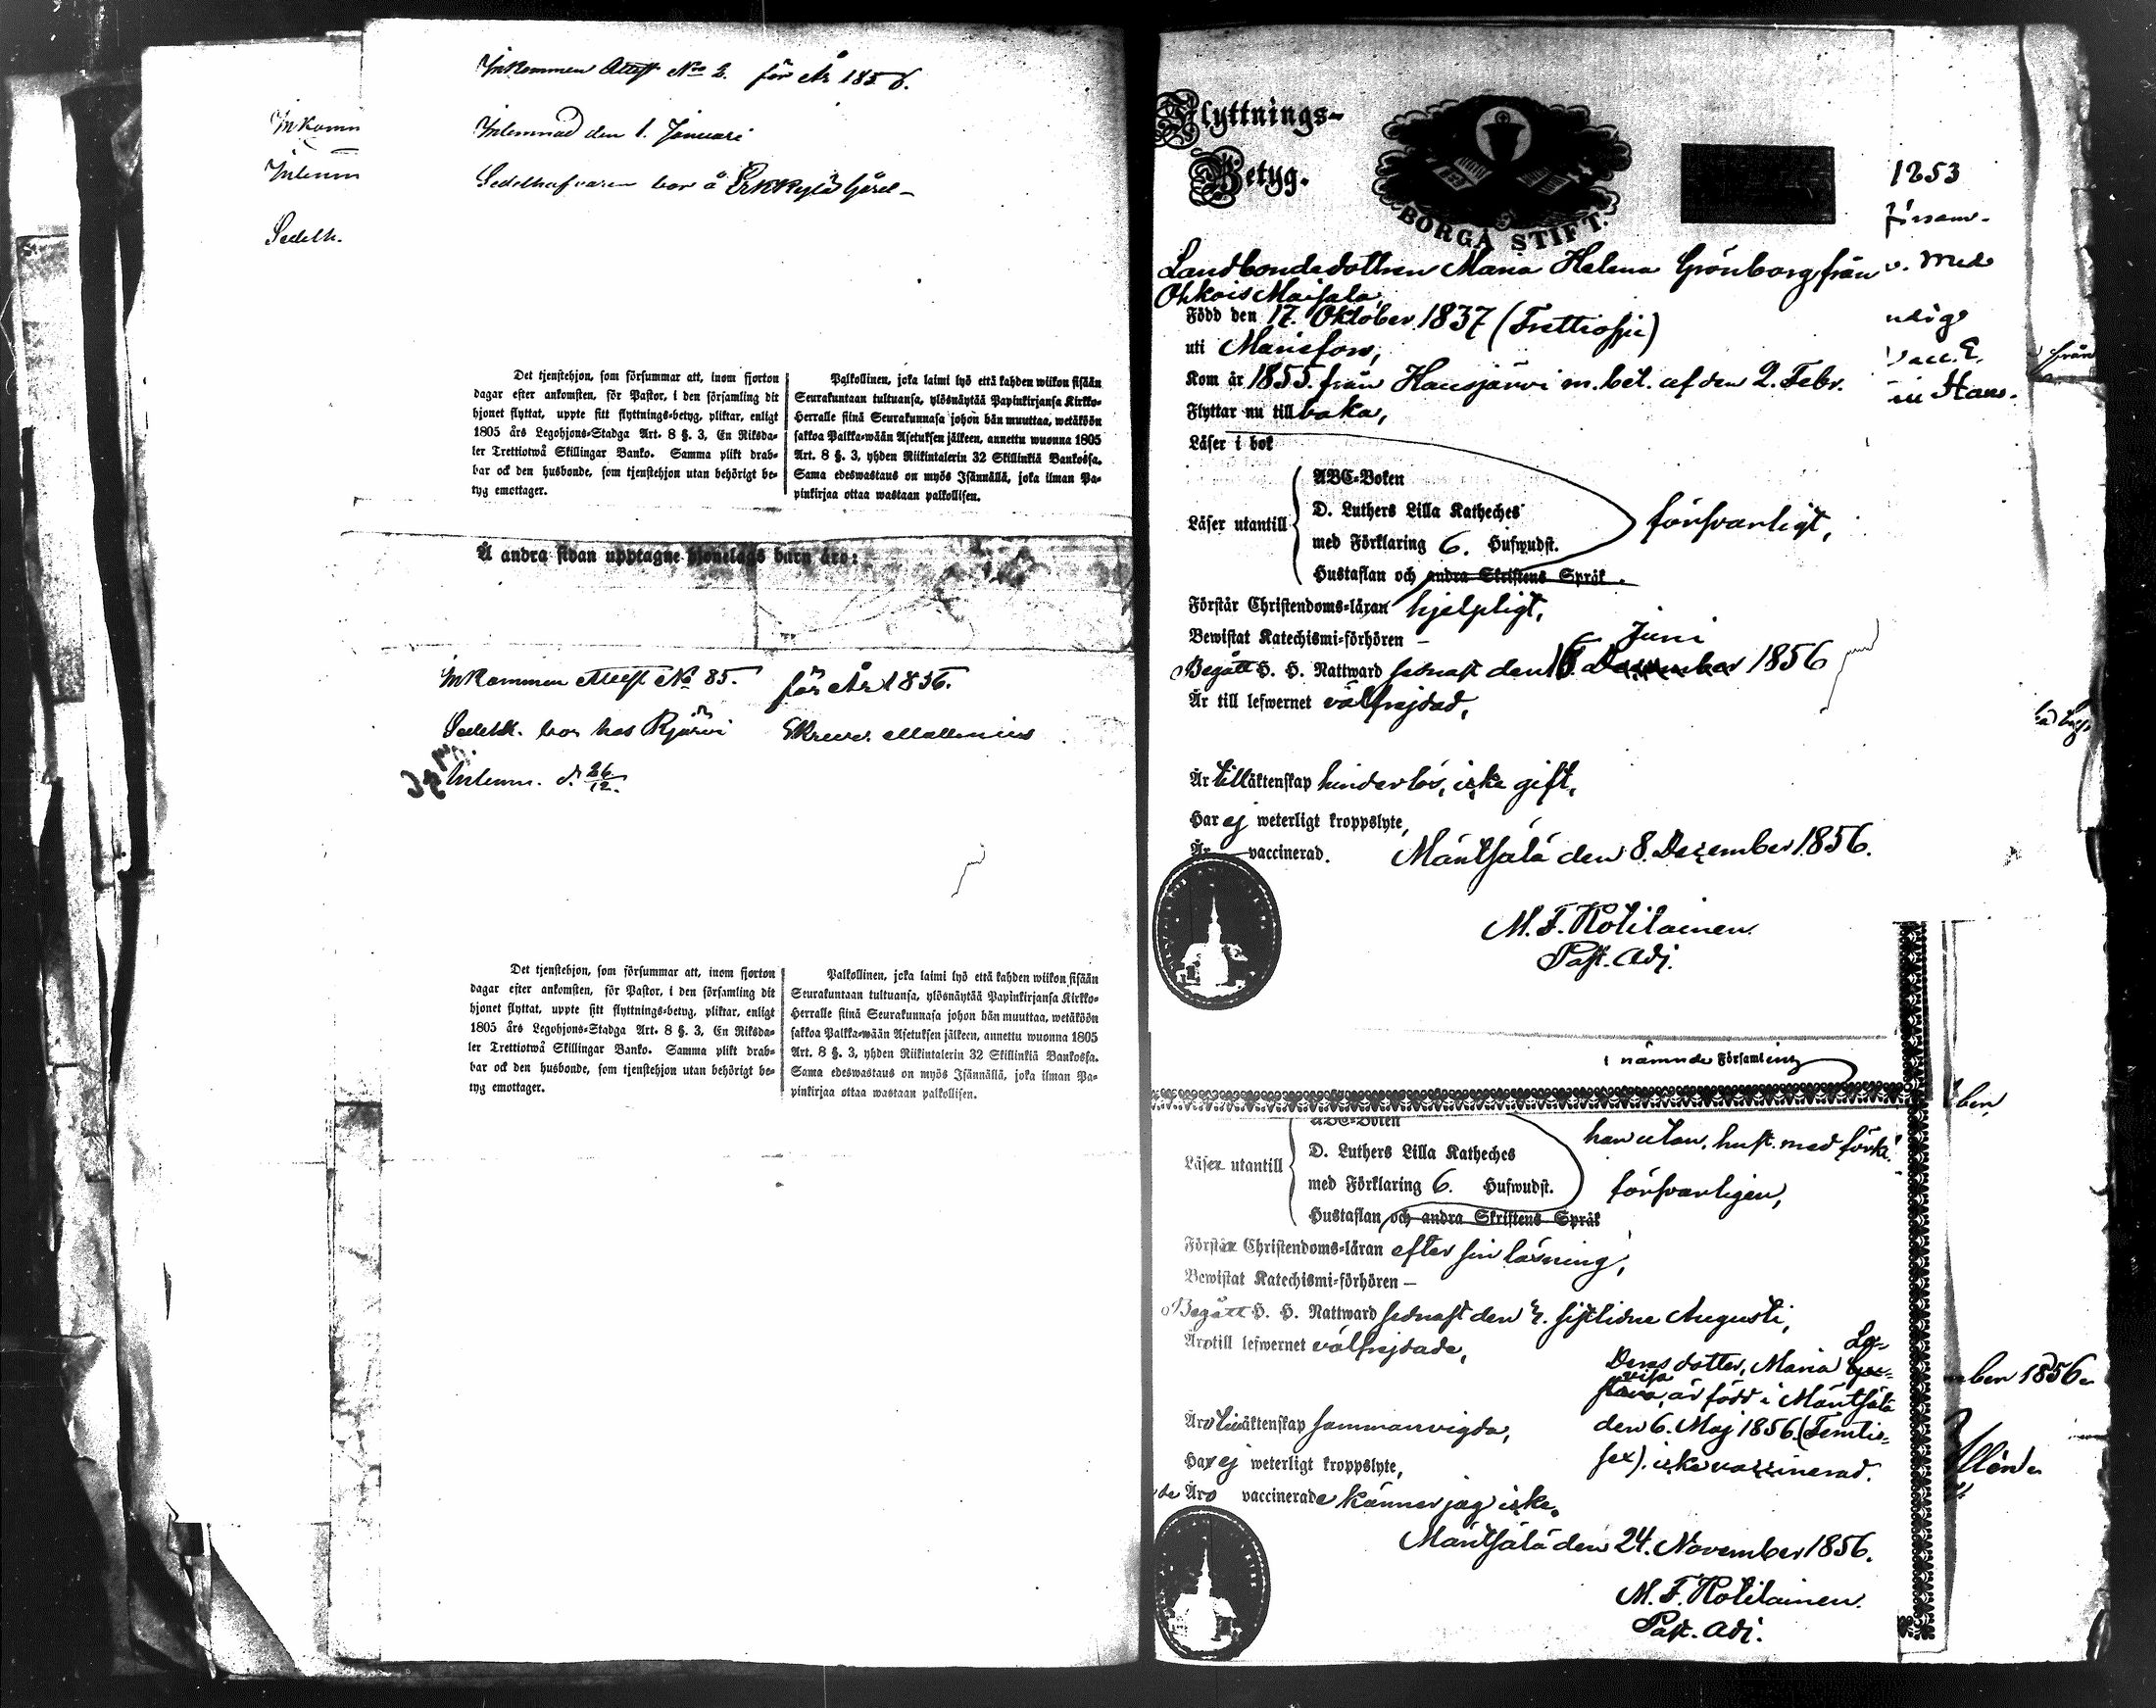 Inkommen Attest No 2. för År 185
Inlemnad den 1. Januari
Sedelhafvaren bor å Erkkylä
Inkomm
Inlemn
Sedelh.
Det tjenstehjon, som försummar att, inom fjorton
dagar efter ankomsten, för Pastor, i den församling dit
hjonet flyttat, uppte sitt flyttnings-betyg, pliktar, enligt
1805 års Legohjons-Stadga Art. 8 §. 3, En Riksda-
ler Trettiotwå Skillingar Banko. Samma plikt drab-
bar ock den husbonde, som tjenstehjon utan behörigt be-
tyg emottager.
Palkollinen, joka laimi lyö että kahden wiikon sisään
Seurakuntaan tultuansa, ylösnäytää Papinkirjansa Kirkko-
Herralle siinä Seurakunnasa johon hän muuttaa, wetäköön
sakkoa Palkka-wään Asetuksen jälkeen, annettu wuonna 1805
Art. 8 §. 3, yhden Riikintalerin 32 Skillinkiä Bankossa.
Sama edeswastaus on myös Isännällä, joka ilman Pa-
pinkirjaa ottaa wastaan palkollisen.
Å andra sidan upptagne hjonelags barn äro:
Inkommen Attest No 85. för År 1856.
Sedelh. bor hos Rjärvi Skrevr. Mallenius
Inlemn. d. 26/12.
Det tjenstehjon, som försummar att, inom fjorton
dagar efter ankomsten, för Pastor, i den församling dit
hjonet flyttat, uppte sitt flyttnings-betyg, pliktar, enligt
1805 års Legohjons-Stadga Art. 8 §. 3, En Riksda-
ler Trettiotwå Skillingar Banko. Samma plikt drab-
bar ock den husbonde, som tjenstehjon utan behörigt be-
tyg emottager.
Palkollinen, joka laimi lyö että kahden wiikon sisään
Seurakuntaan tultuansa, ylösnäytää Papinkirjansa Kirkko-
Herralle siinä Seurakunnasa johon hän muuttaa, wetäköön
sakkoa Palkka-wään Asetuksen jälkeen, annettu wuonna 1805
Art. 8 §. 3, yhden Riikintalerin 32 Skillinkiä Bankossa.
Sama edeswastaus on myös Isännällä, joka ilman Pa-
pinkirjaa ottaa wastaan palkollisen.
Flyttnings-
Betyg.
BORGÅ STIFT.
Landbondedottren Maria Helena Grönborg från
Ohkois Maisala,
Född den 17. Oktober 1837 (Trettiosju)
uti
Kom år 1855. från Hausjärvi m. bet. af den 2. Febr.
Flyttar nu tillbaka,
Läser i bok
ABC-Boken
Läser utantill
D. Luthers Lilla Katheches
med Förklaring 6. Hufwudst.
Hustaflan och andra Skriftens Språk
försvarligt,
Förstår Christendoms-läran hjelpligt,
Bewistat Katechismi-förhören —
Juni
Begått H. H. Nattward sednast den 15. December 1856
Är till lefwernet välfrejdad,
Är till äktenskap hinderlös, icke gift,
Har ej weterligt kroppslyte,
Är vaccinerad.
Mäntsälä den 8. December 1856.
M. F. Kotilainen.
Past. Adj.
1853
försam-
v. med
Vacc. E.
från
i nämnde Församling
ABC-Boken
Läser utantill
D. Luthers Lilla Katheches
med Förklaring 6. Hufwudst.
Hustaflan och andra Skriftens Språk
han utan, hust. med förkl.
försvarligen,
Förstår Christendoms-läran efter sin läsning,
Bewistat Katechismi-förhören —
Begått H. H. Nattward sednast den 3. sistlidne Augusti,
Äro till lefwernet välfrejdade,
Deras dotter, Maria Lo-
visa, är född i Mäntsälä
den 6. Maj 1856 (Femtio-
sex). icke vaccinerad.
Äro till äktenskap sammanvigda,
Har ej weterligt kroppslyte,
Äro vaccinerade känner jag icke.
Mäntsälä den 24. November 1856.
M. F. Kotilainen.
Past. Adj.
ber,
mber 1856.